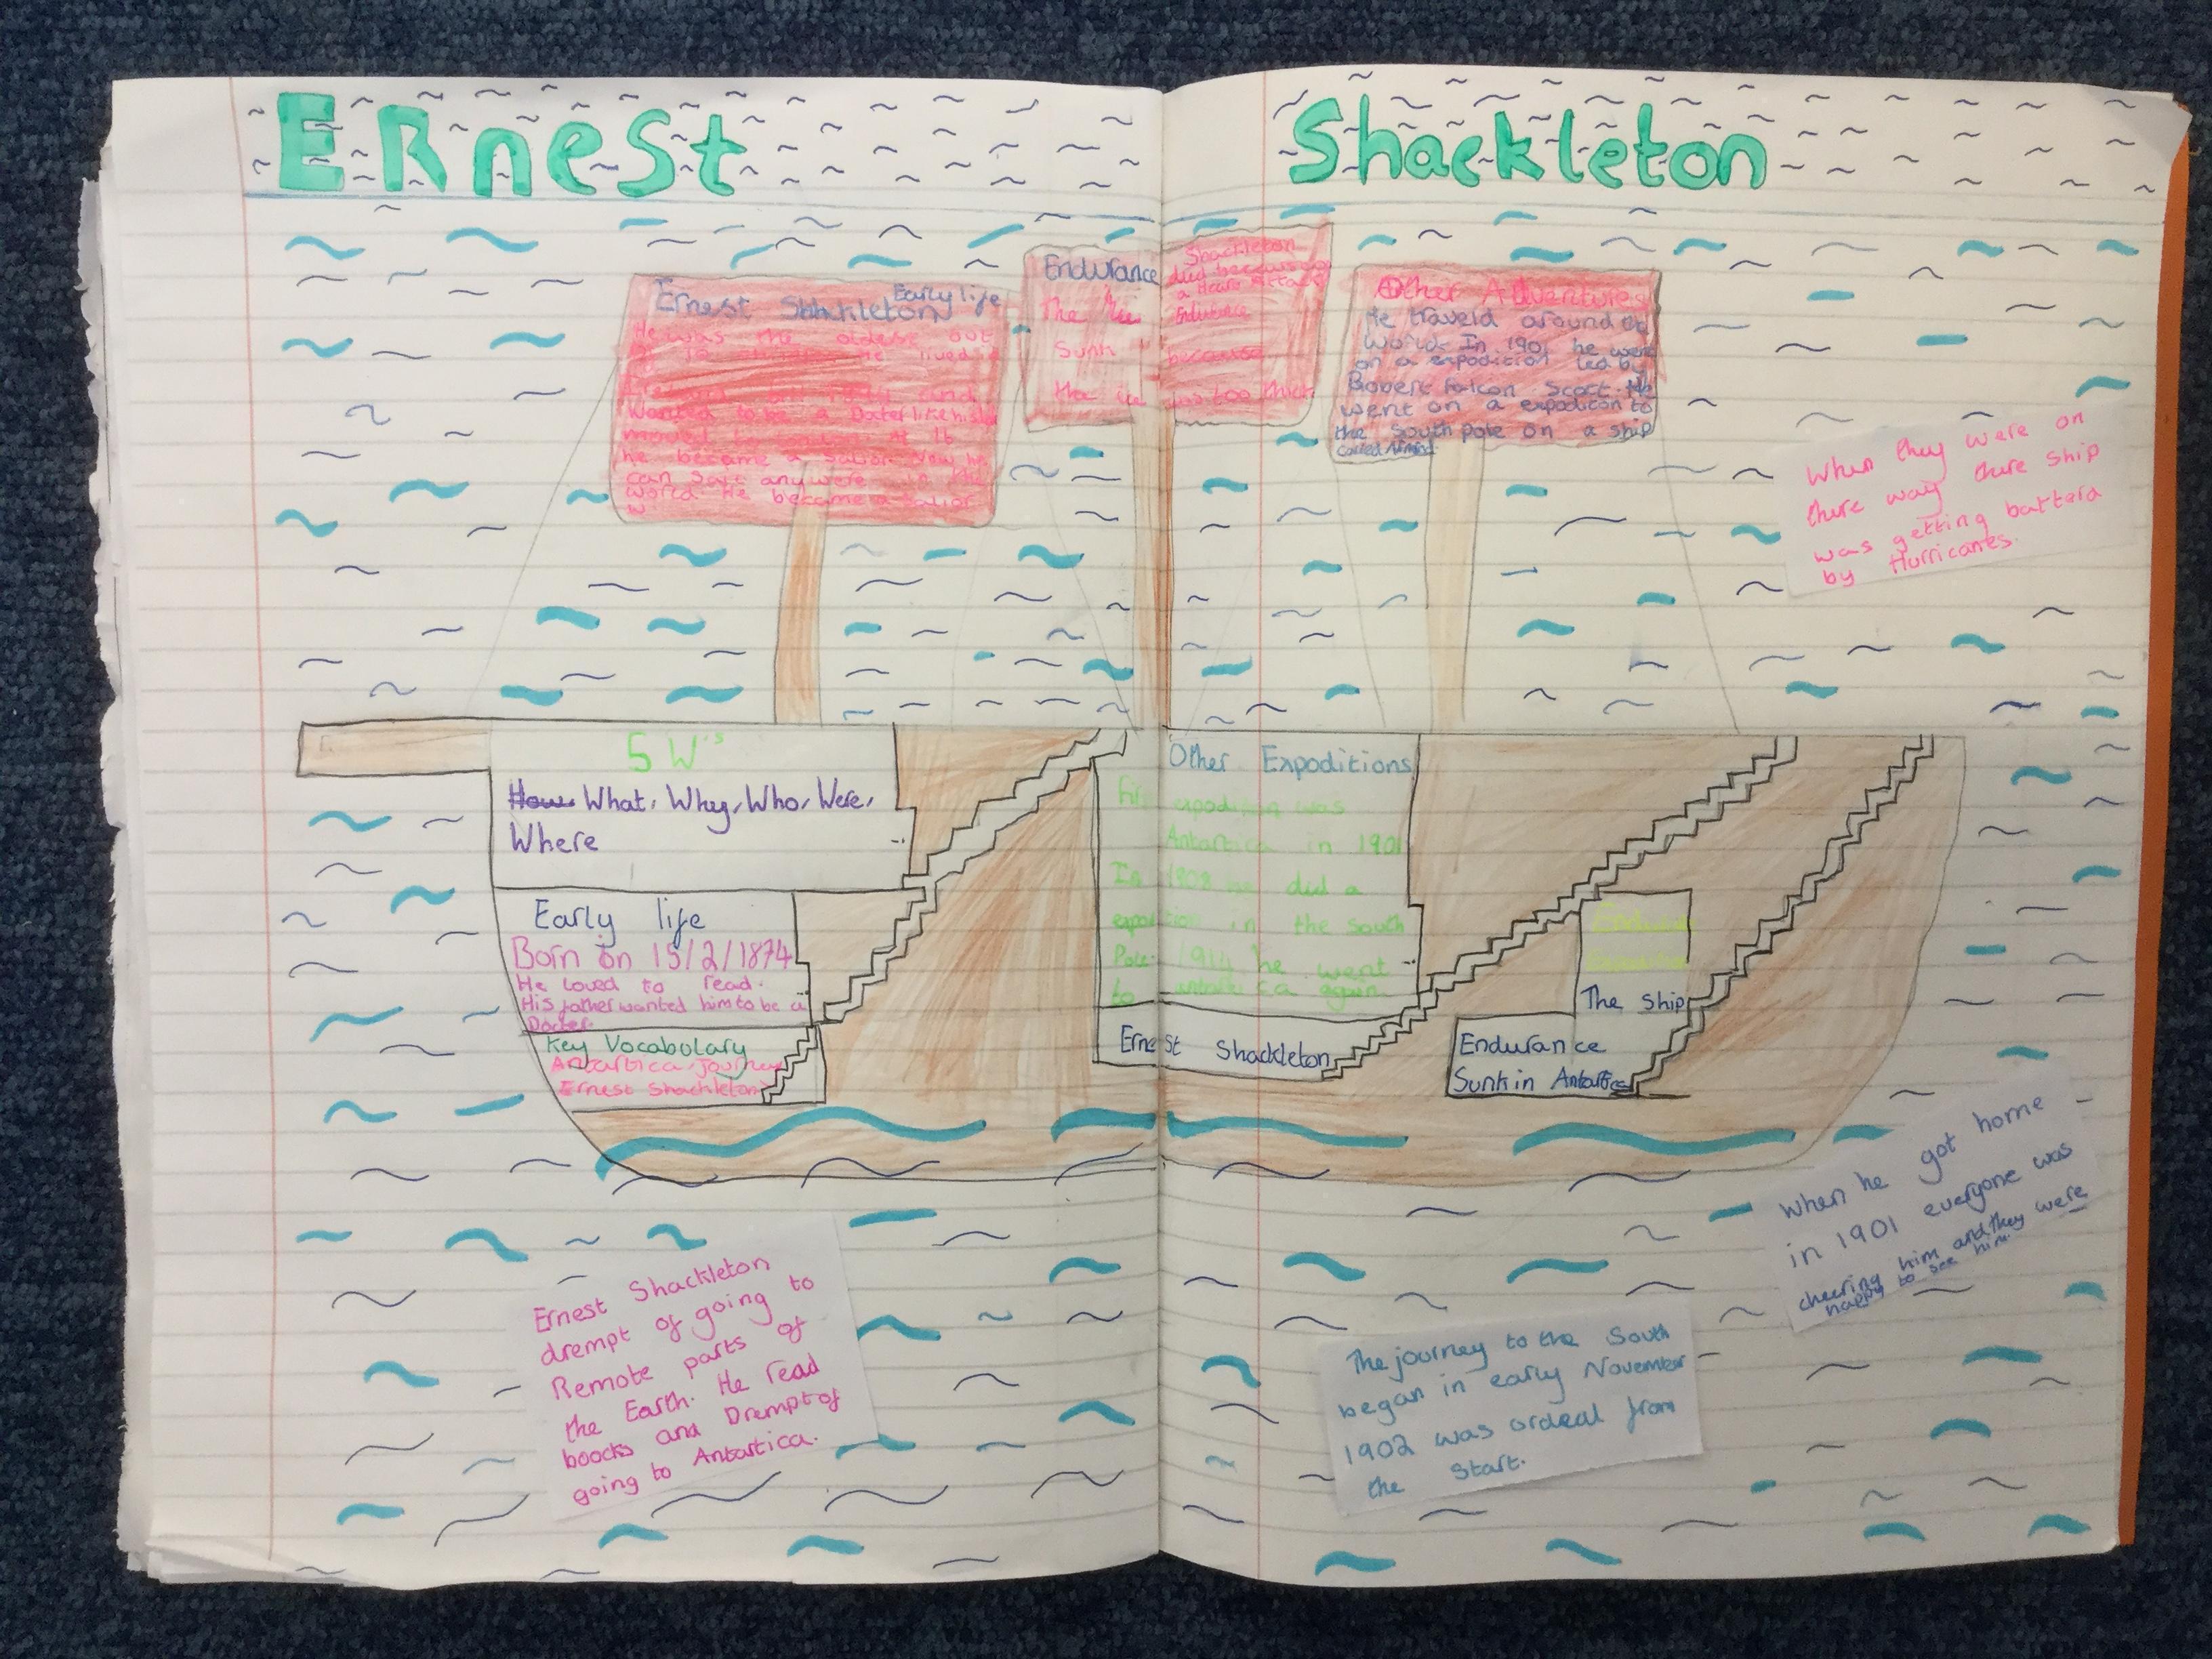 ERnest Shackleton
Ernest Shackleton Early life
He was the oldest out
he lived
and
wanted to be a Docter like his
moved At 16
he became a Salior. Now he
can Sail anywere in the
world. He became a Salior
w
Endurance
The ice
Sunk
the ice
Shackleton
died because
a Heart Attack
Endurance
because
was too thick
Other Adventures
He traveld around the
World. In 1901 he were
on a expodition led by
Robert Falcon Scott. He
went on a expodition to
the South pole on a ship
called Nimrod
When they were on
there way there ship
was getting battera
by Hurricanes.
5 W's
How. What, Why, Who, Were,
Where
Early life
Born on 15/2/1874
He loved to read.
His father wanted him to be a
Docter.
Key Vocabulary
Antartica, journey
Ernest Shackleton
Other Expoditions
First expodition was
Antartica in 1901
In 1908 he did a
expodition in the South
Pole. 1914 he went
to antartica again
Ernest Shackleton
Endurance
The Ship
Endurance
Sunk in Antartica
Ernest Shackleton
drempt of going to
Remote parts of
the Earth. He read
boocks and Drempt of
going to Antartica.
The journey to the South
began in early November
1902 was ordeal from
the start.
When he got home
in 1901 everyone was
cheering him and they were
happy to see him.